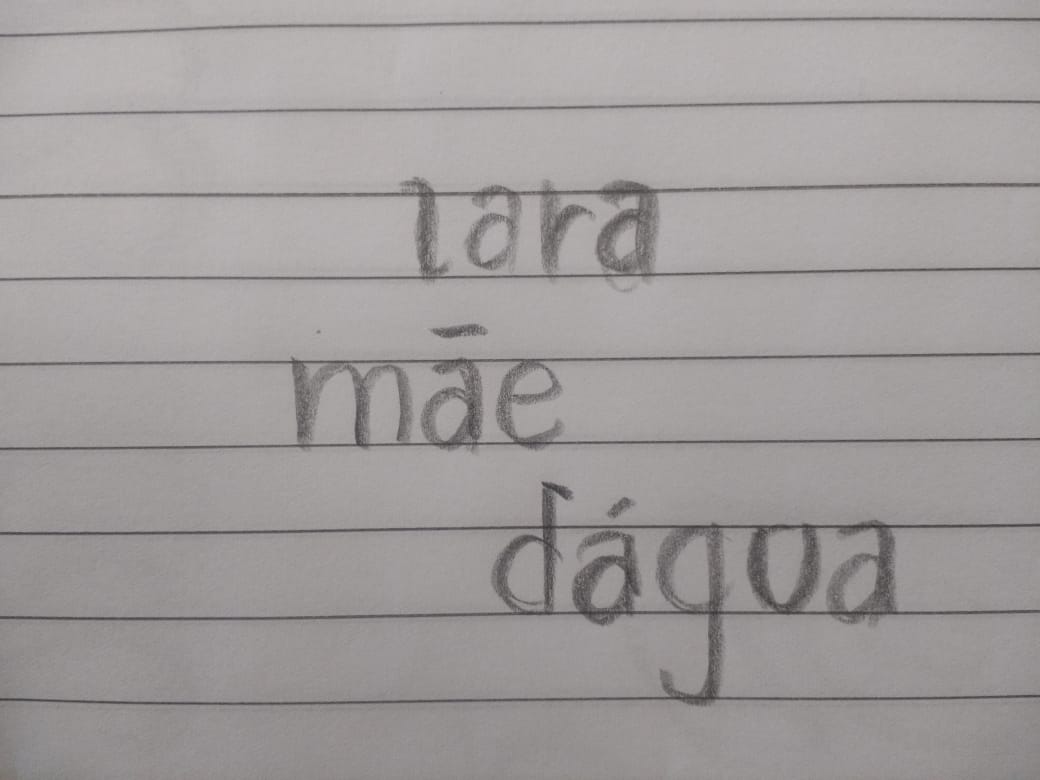 Iara
mãe
dágua